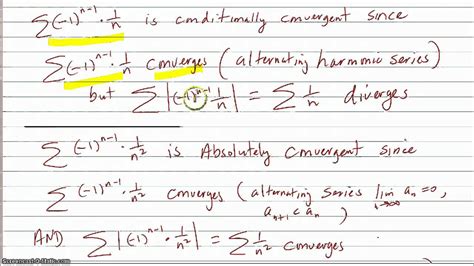 ∑(-1)ⁿ⁻¹ · 1/n is conditionally convergent since
∑(-1)ⁿ⁻¹ · 1/n converges (alternating harmonic series)
but ∑|(-1)ⁿ⁻¹ 1/n| = ∑ 1/n diverges
∑(-1)ⁿ⁻¹ · 1/n² is Absolutely convergent since
∑(-1)ⁿ⁻¹ · 1/n² converges (alternating series lim n→∞ aₙ = 0,
aₙ₊₁ < aₙ)
AND ∑|(-1)ⁿ⁻¹ · 1/n²| = ∑ 1/n² converges
Screencast-O-Matic.com